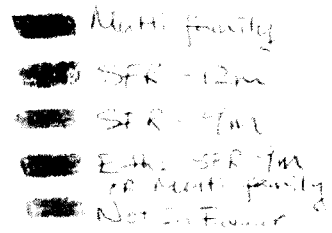 Multi family
SFR - 12m
SFR - 9m
Eith. SFR 9m
or Multi family
Not In Favour